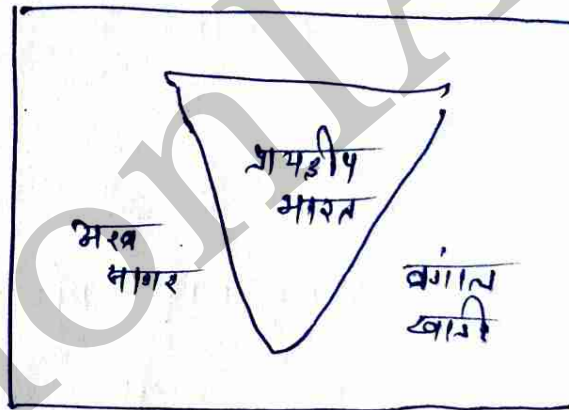 प्रायद्वीप
भारत
अरब
सागर
बंगाल
खाड़ी